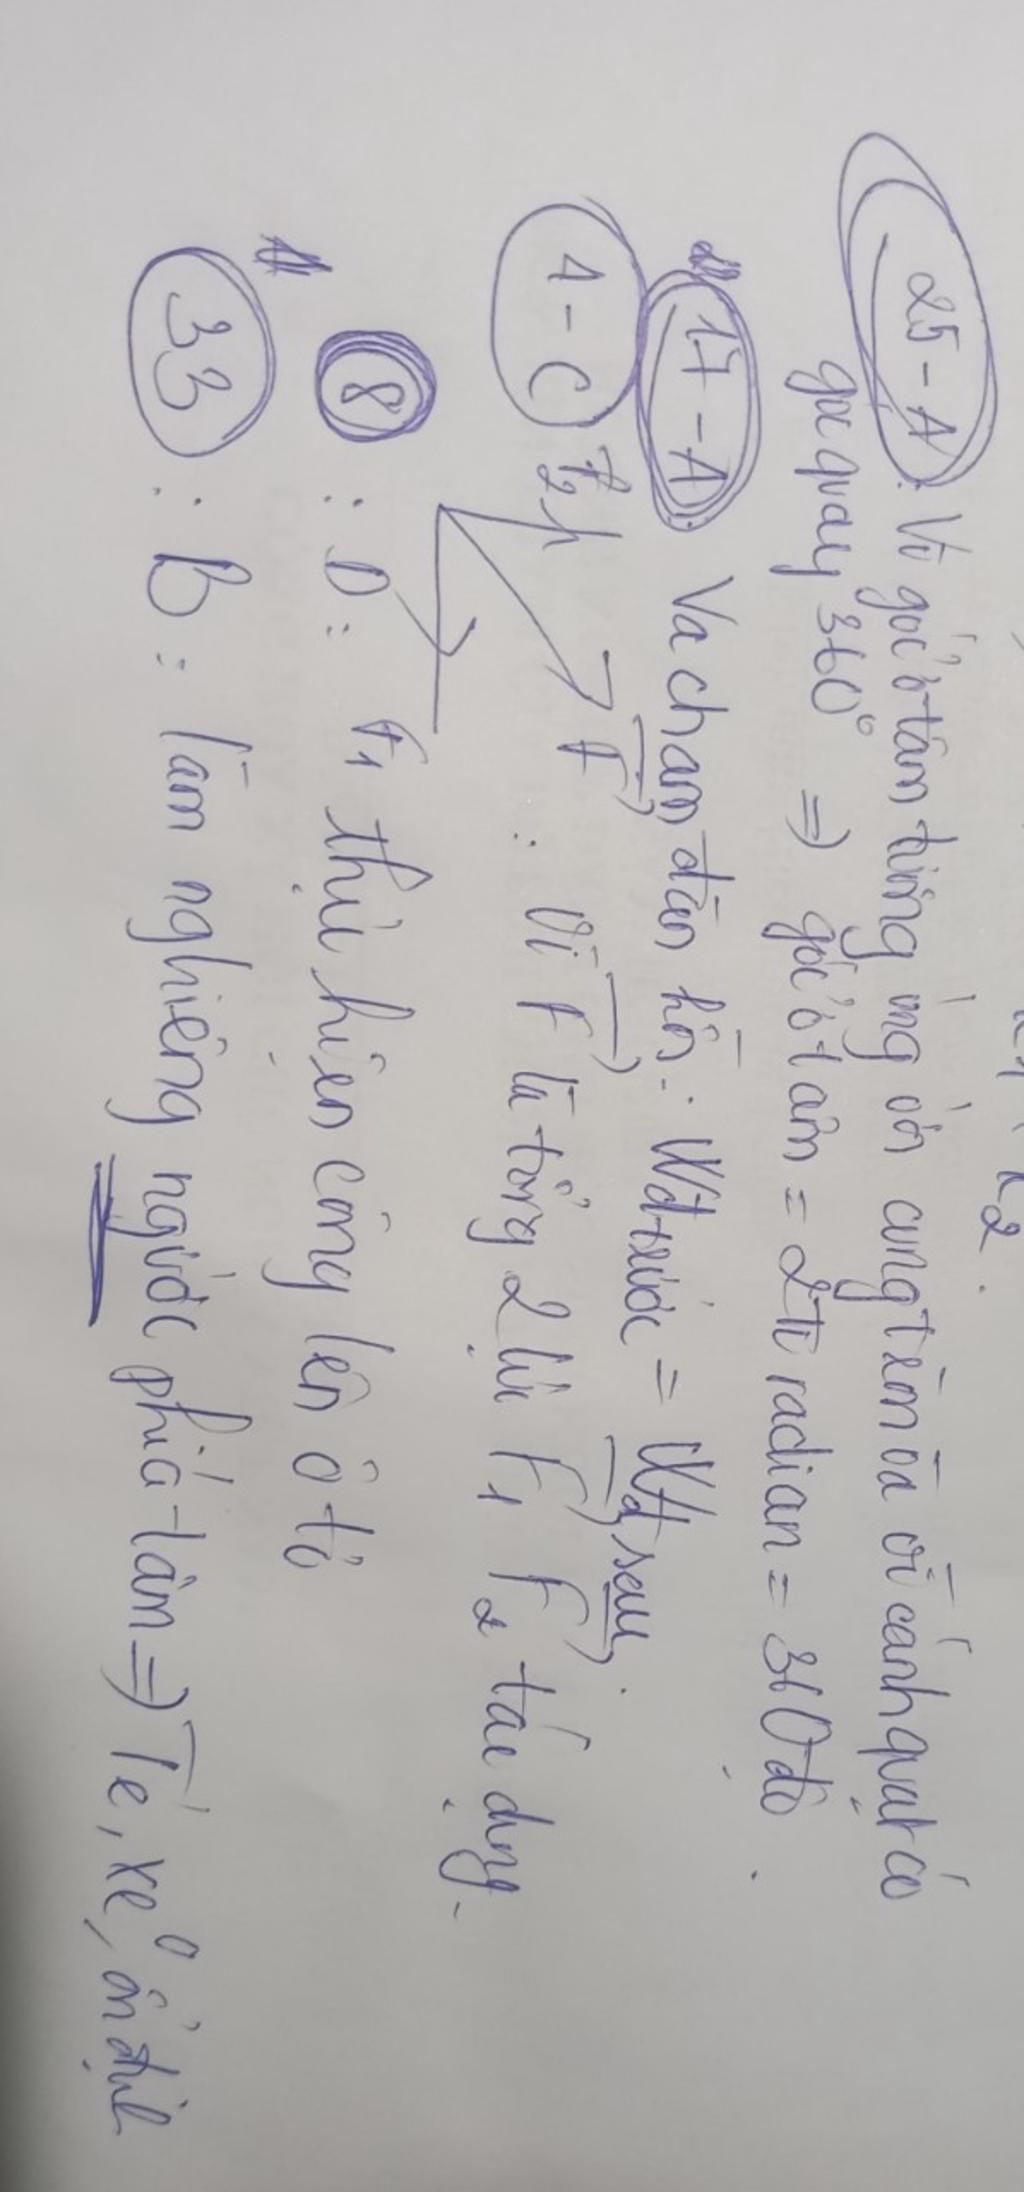 x₂.
25-A: Vì góc ở tâm tương ứng với cung tròn và vì cánh quạt có
góc quay 360° => góc ở tâm = 2π radian = 360 độ.
17-A: Va chạm đàn hồi: Wđ trước = Wđ sau.
1-C F₂ F : Vì F là tổng 2 lực F₁ F₂ tác dụng.
8 : D: F₁ thực hiện công lên ô tô
33 : B: làm nghiêng người phía tâm => Té, xe ổn định